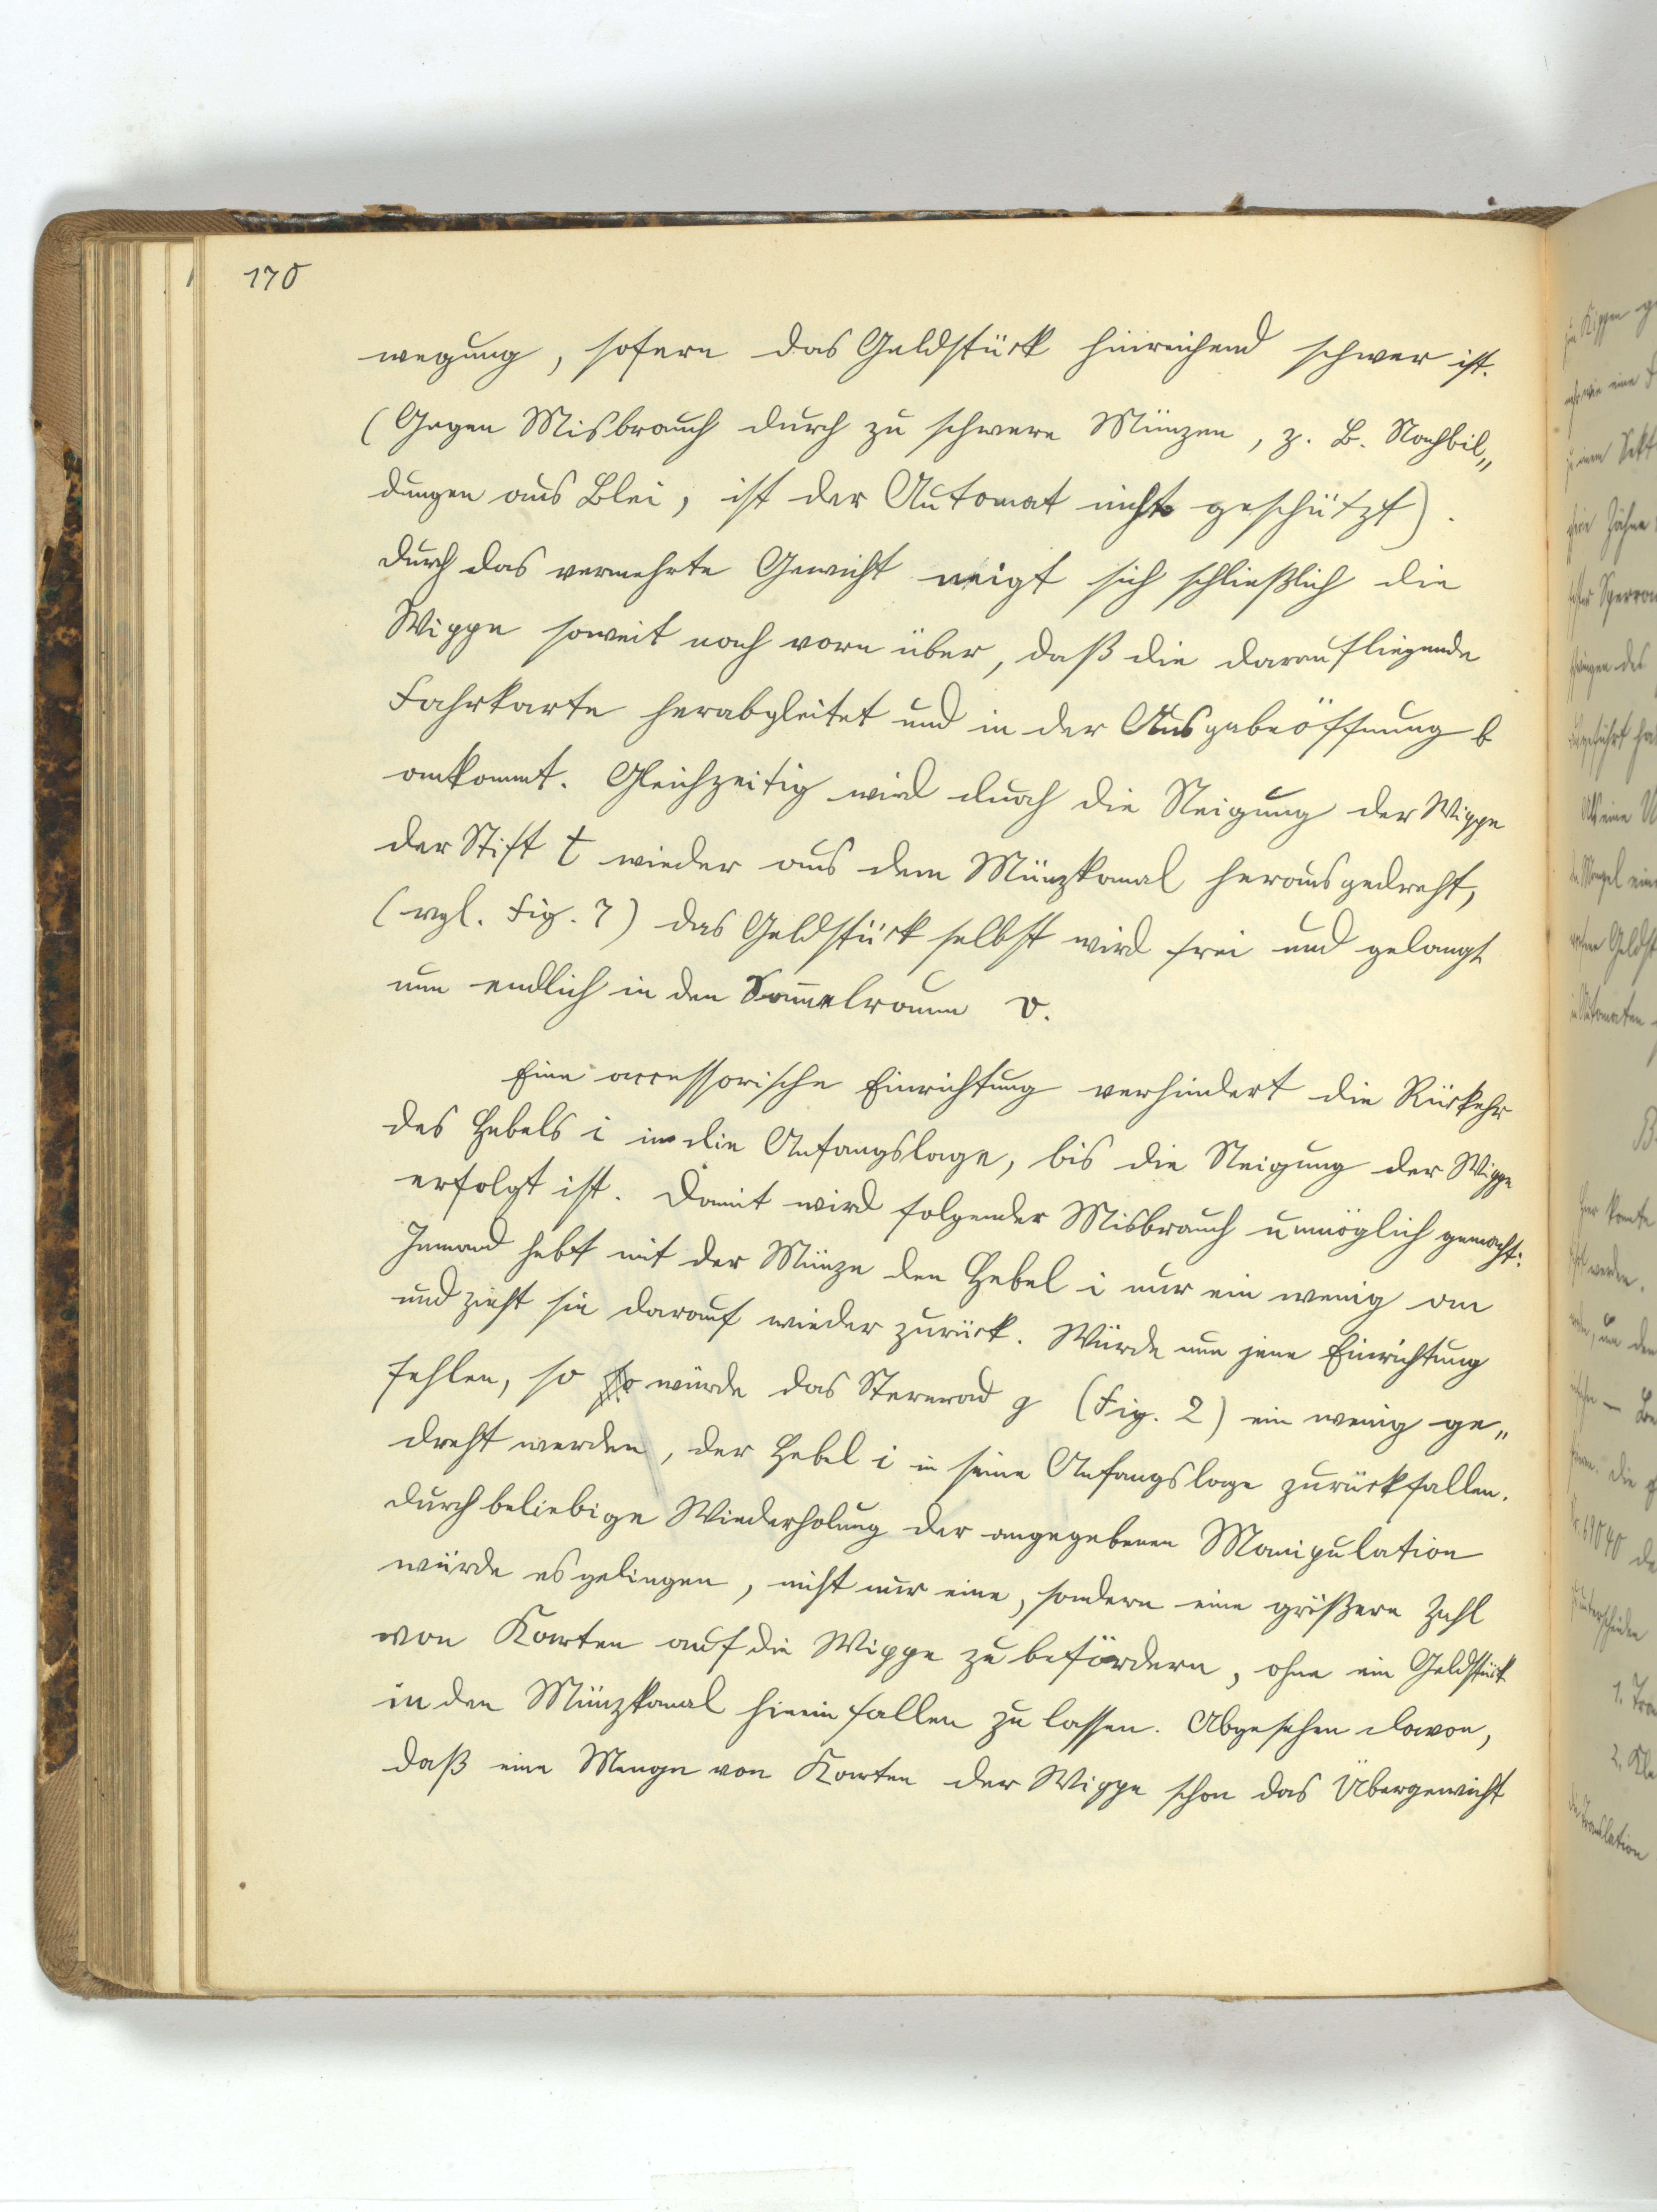 170
wegung, sofern das Geldstück hinreichend schwer ist.
(Gegen Misbrauch durch zu schwere Münzen, z. B. Nachbil„
dungen aus Blei, ist der Automat nicht geschützt).
Durch das vermehrte Gewicht neigt sich schließlich die
Wippe soweit nach vorn über, daß die daraufliegende
Fahrkarte herabgleitet und in der Ausgabeöffnung b
ankommt. Gleichzeitig wird durch die Neigung der Wippe
der Stift t wieder aus dem Münzkanal herausgedreht,
(vgl. Fig. 7) das Geldstück selbst wird frei und gelangt
nun endlich in den Sam̅elraum v.
Eine accessorische Einrichtung verhindert die Rückkehr
des Hebels i in die Anfangslage, bis die Neigung der Wippe
erfolgt ist. Damit wird folgender Misbrauch unmöglich gemacht:
Jemand hebt mit der Münze den Hebel i nur ein wenig an
und zieht sie darauf wieder zurück. Würde nun jene Einrichtung
fehlen, so würde das Sternrad g (Fig. 2) ein wenig ge„
dreht werden, der Hebel i in seine Anfangslage zurückfallen.
Durch beliebige Wiederholung der angegebenen Manipulation
würde es gelingen, nicht nur eine, sondern eine größere Zahl
von Karten auf die Wippe zu befördern, ohne ein Geldstück
in den Münzkanal hinein fallen zu lassen. Abgesehen davon,
daß eine Menge von Karten der Wippe schon das Übergewicht